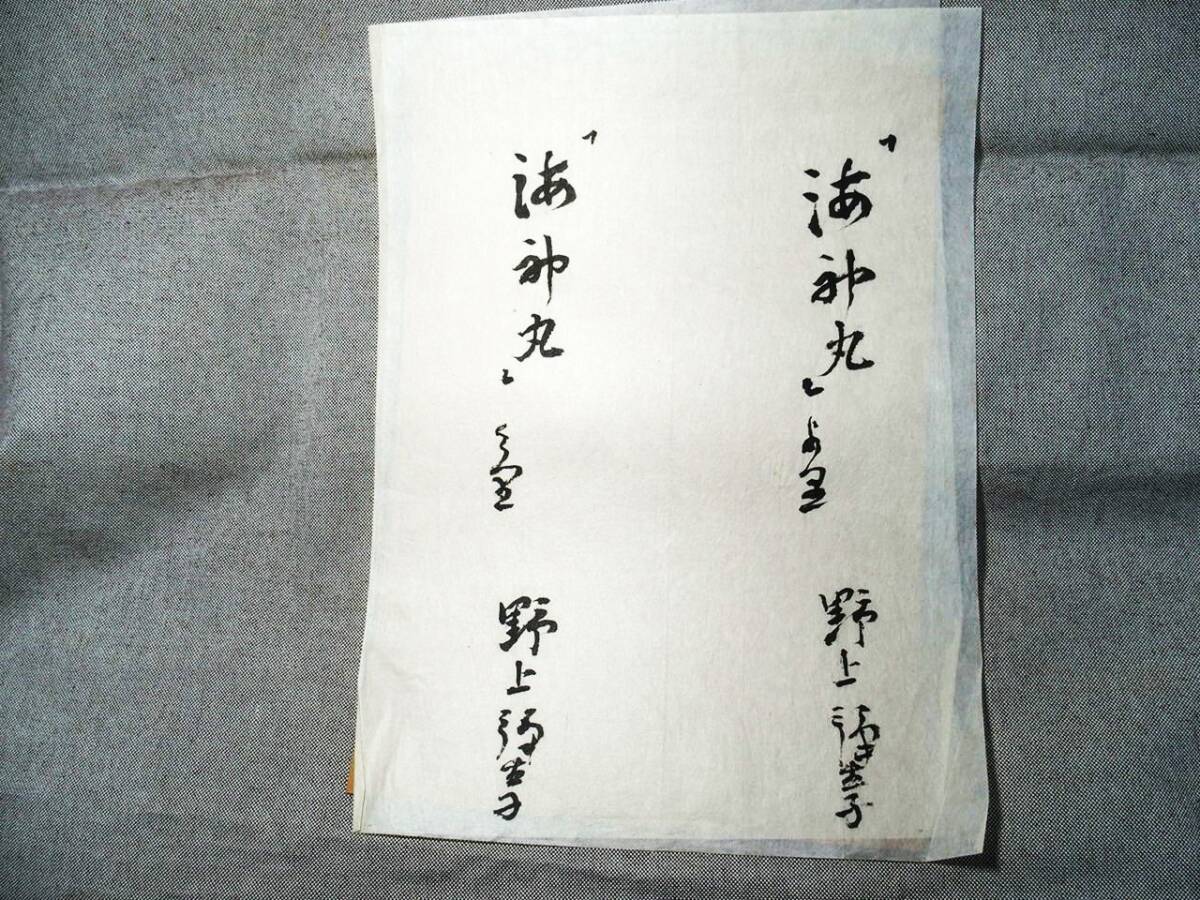 「海神丸」 野上彌生子
「海神丸」 野上彌生子